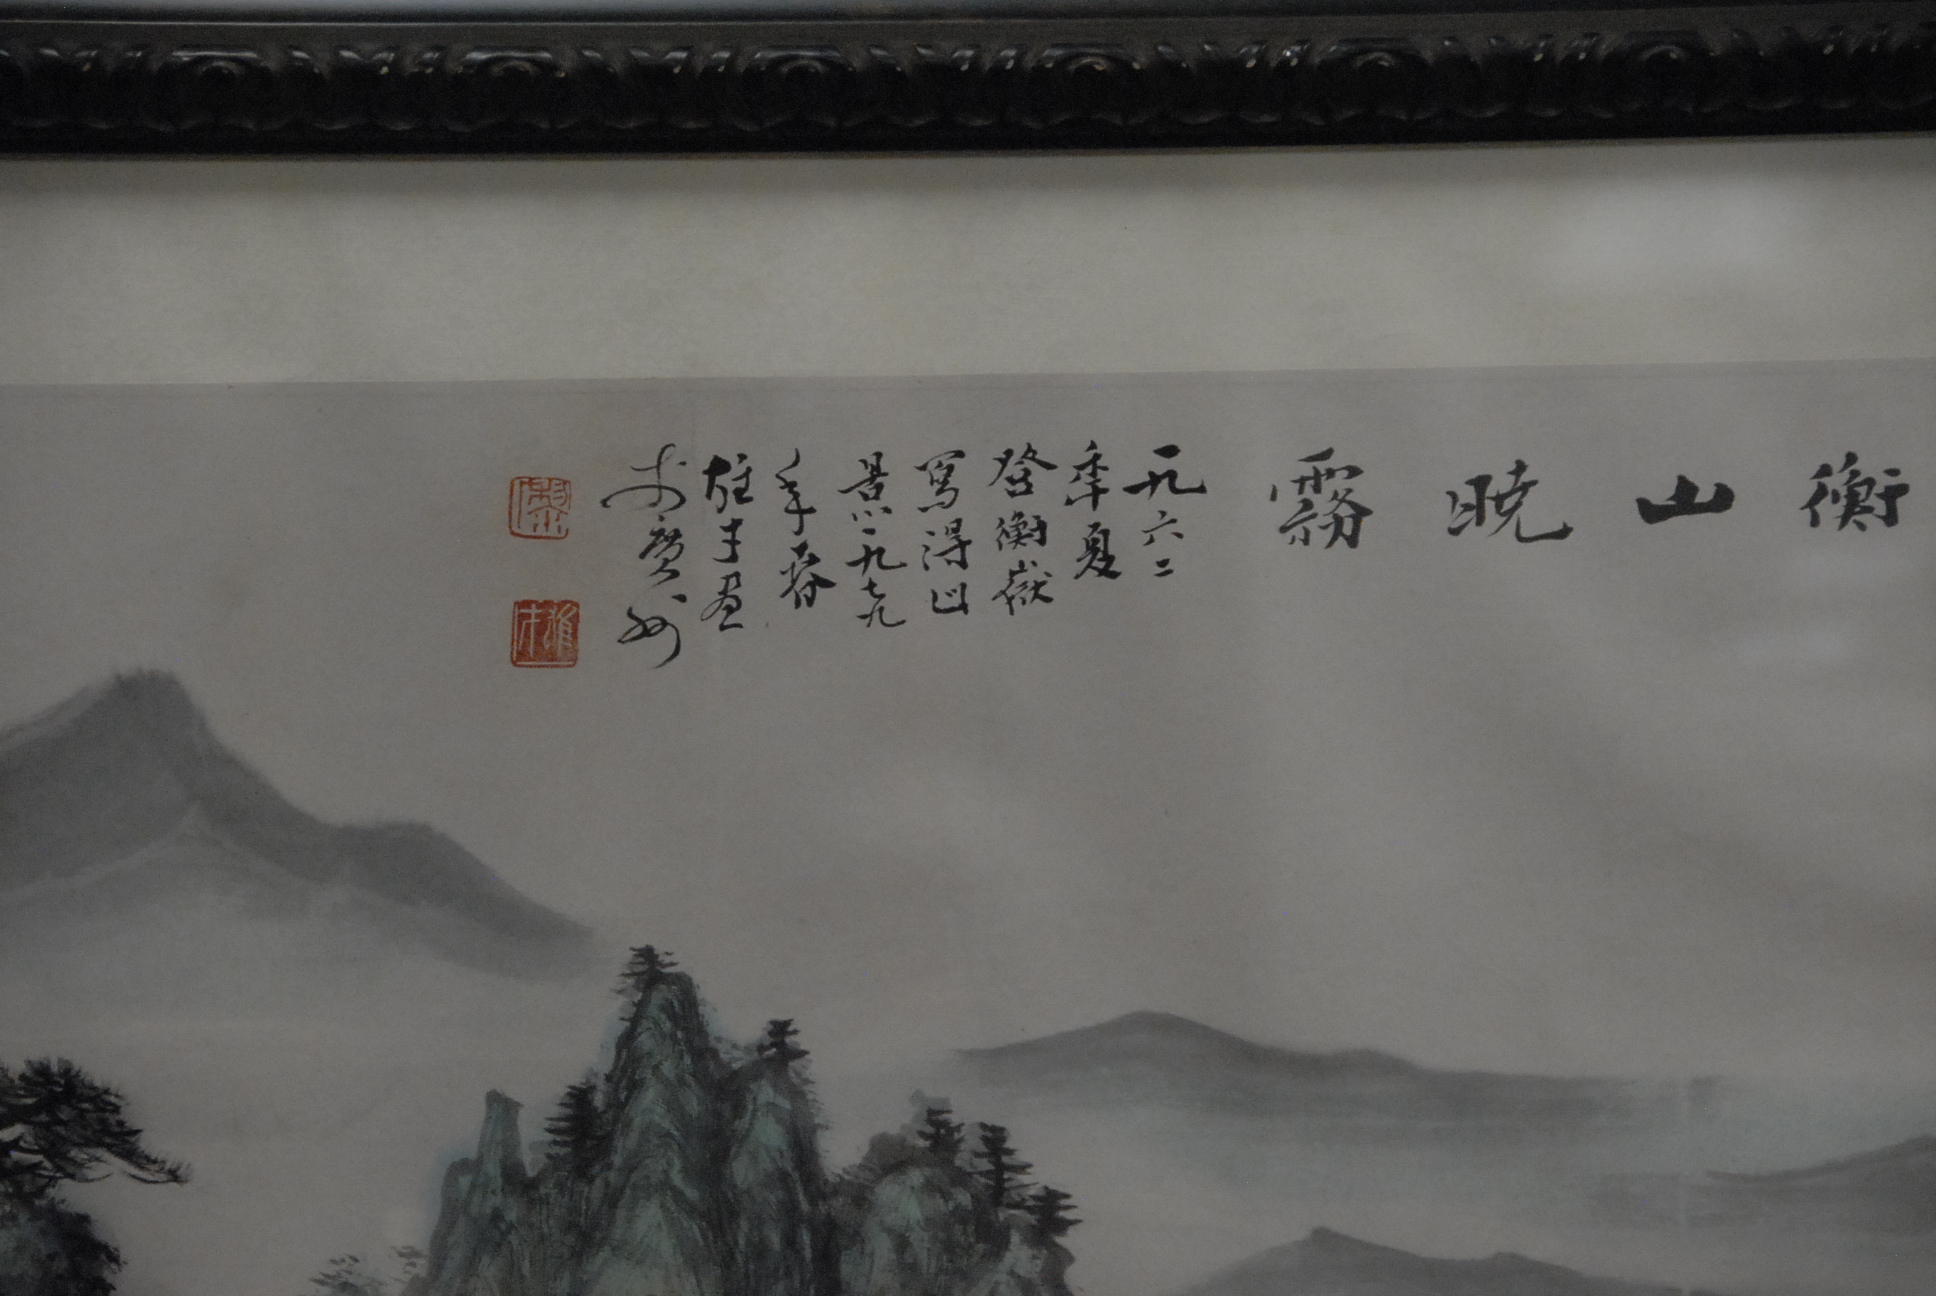 衡山曉霧
一九六二
年夏
登衡嶽
寫得此
景一九七九
年春
雄才畫
於廣州
黎
雄才